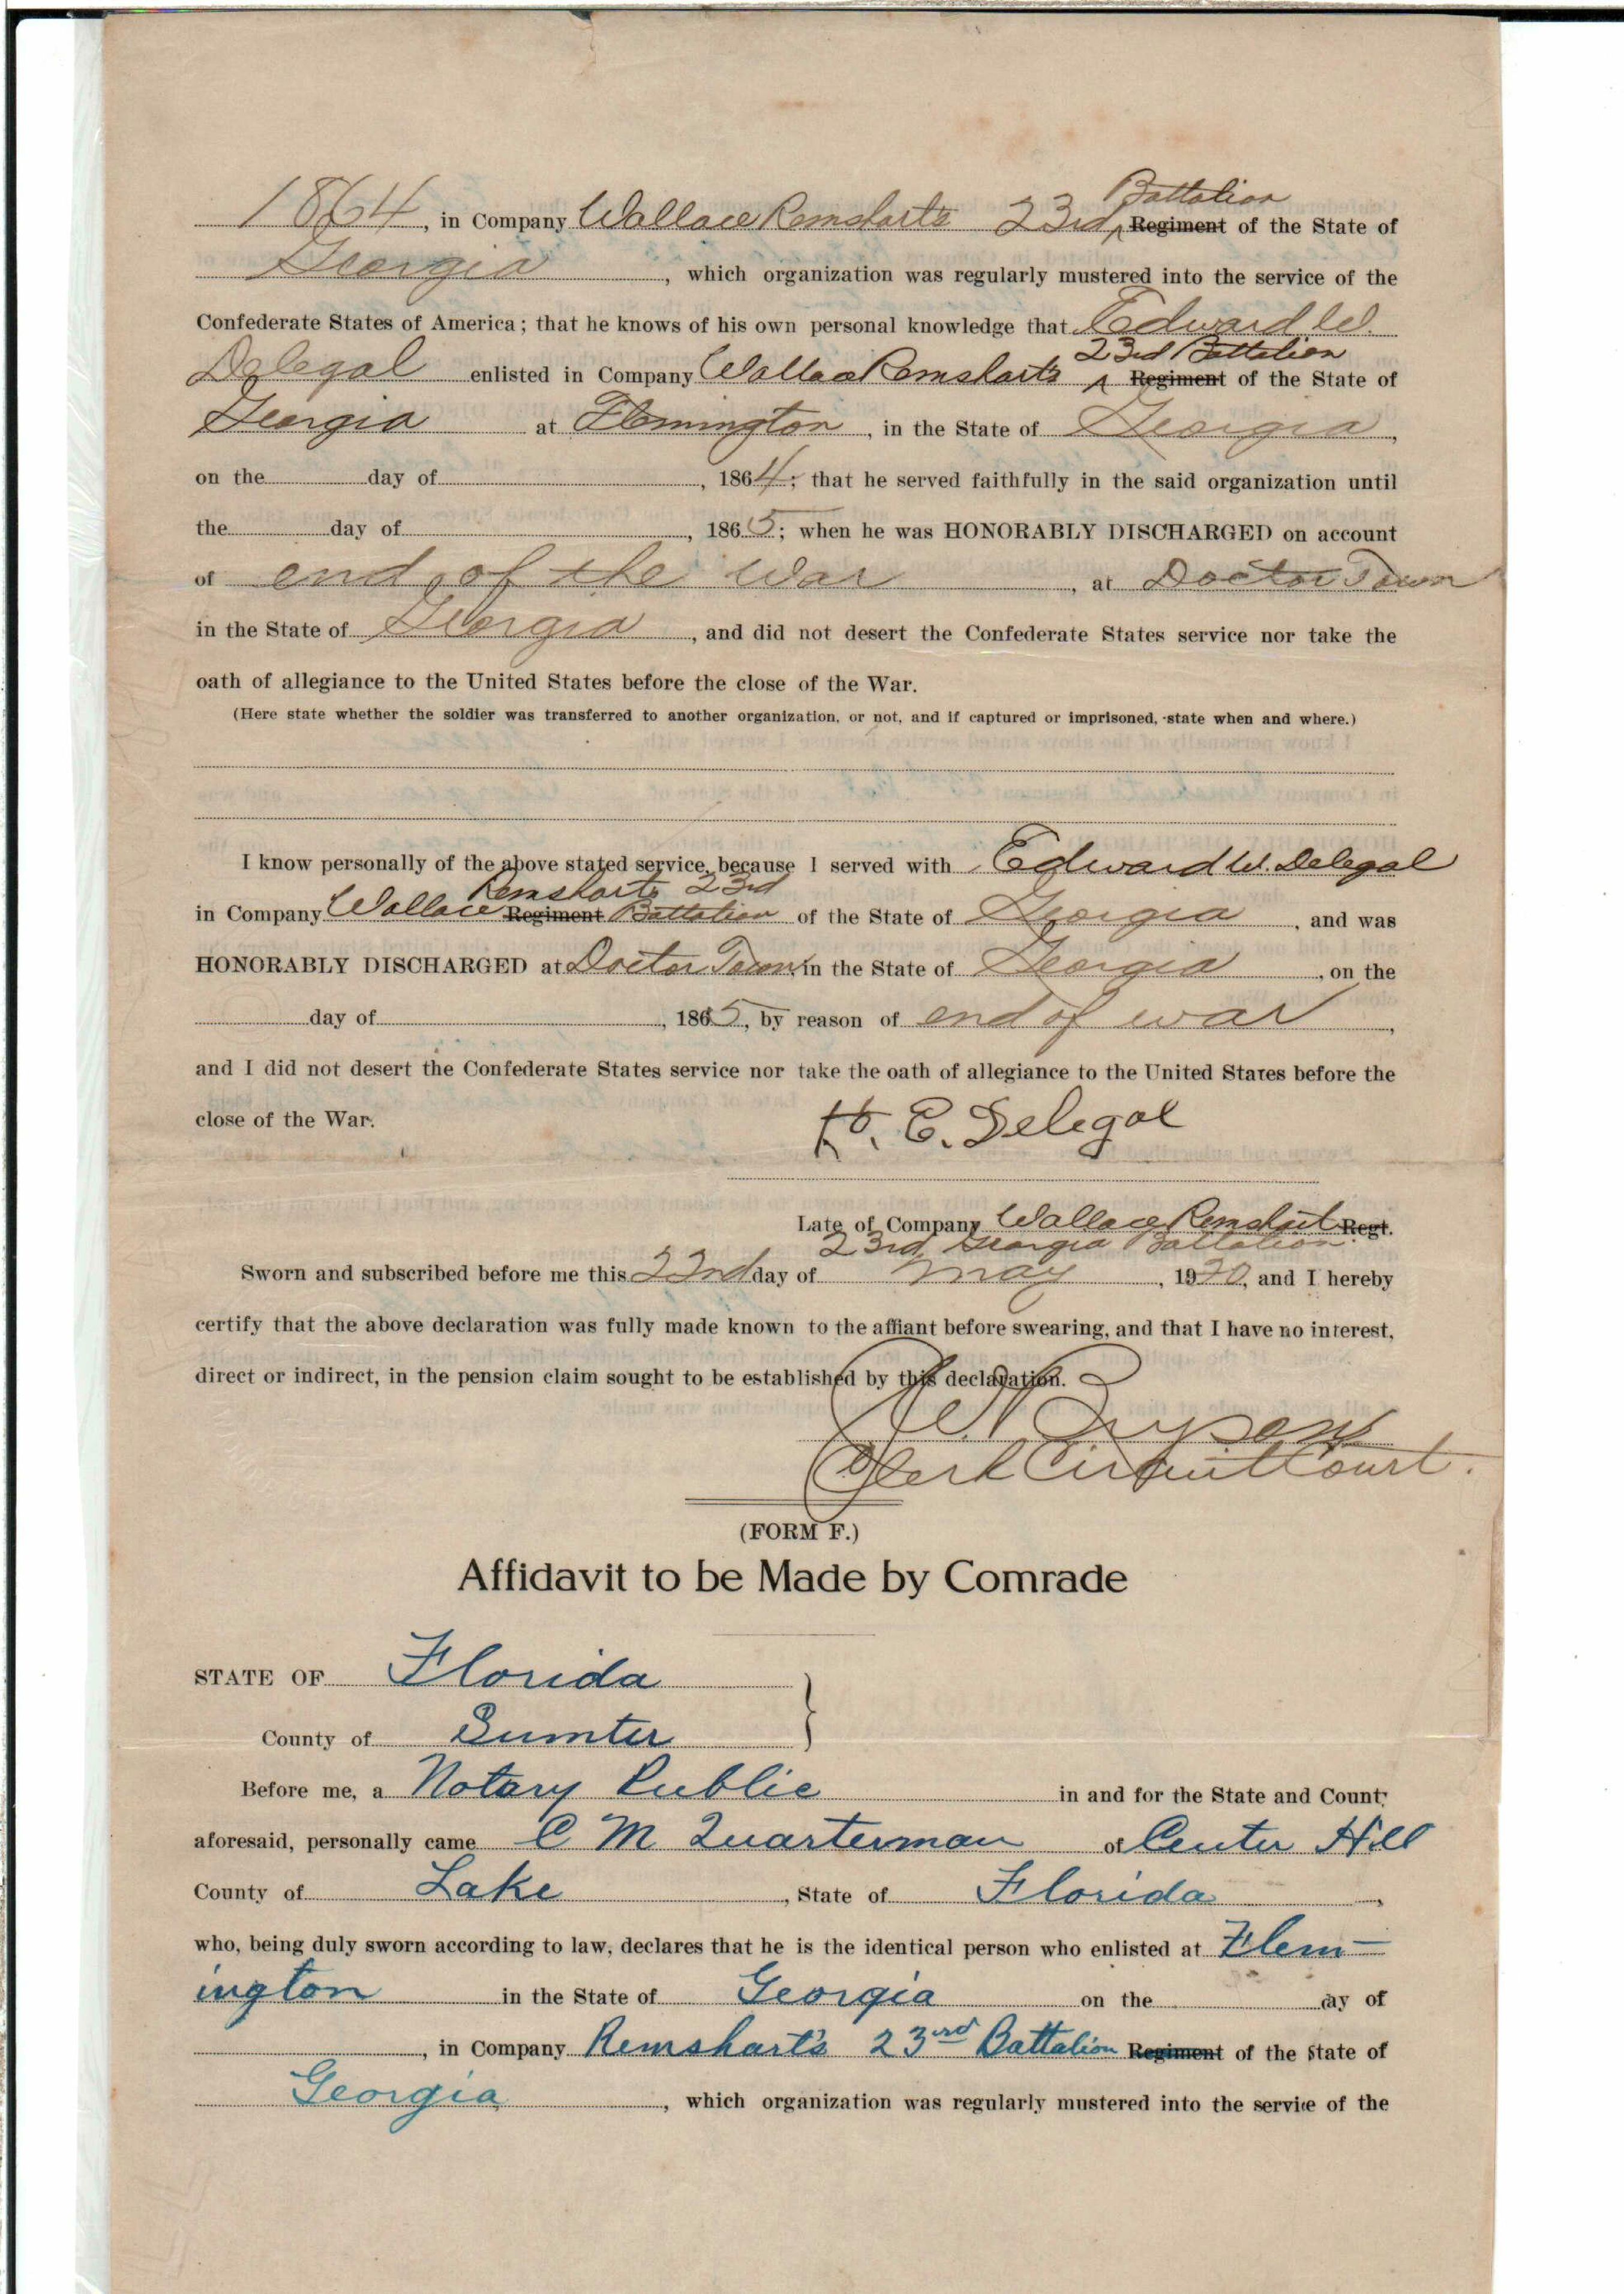 1864, in Company Wallace Remsharts 23rd Battalion Regiment of the State of
Georgia, which organization was regularly mustered into the service of the
Confederate States of America; that he knows of his own personal knowledge that Edward W.
23rd Battalion
Delegal enlisted in Company Wallace Remsharts Regiment of the State of
Georgia at Flemington, in the State of Georgia,
on the day of , 1864; that he served faithfully in the said organization until
the day of , 1865; when he was HONORABLY DISCHARGED on account
of end of the war, at Doctor Town
in the State of Georgia, and did not desert the Confederate States service nor take the
oath of allegiance to the United States before the close of the War.
(Here state whether the soldier was transferred to another organization, or not, and if captured or imprisoned, state when and where.)
I know personally of the above stated service, because I served with Edward W. Delegal
Remsharts 23rd
in Company Wallace Regiment Battalion of the State of Georgia, and was
HONORABLY DISCHARGED at Doctor Town, in the State of Georgia, on the
day of , 1865, by reason of end of war,
and I did not desert the Confederate States service nor take the oath of allegiance to the United States before the
close of the War.
H. E. Delegal
Late of Company Wallace Remshart Regt.
23rd Georgia Battalion
Sworn and subscribed before me this 22nd day of May, 1920, and I hereby
certify that the above declaration was fully made known to the affiant before swearing, and that I have no interest,
direct or indirect, in the pension claim sought to be established by this declaration.
Clerk Circuit Court.
(FORM F.)
Affidavit to be Made by Comrade
STATE OF Florida
County of Sumter
Before me, a Notary Public in and for the State and County
aforesaid, personally came C M Quarterman of Center Hill
County of Lake, State of Florida,
who, being duly sworn according to law, declares that he is the identical person who enlisted at Flem-
ington in the State of Georgia on the day of
, in Company Remshart's 23rd Battalion Regiment of the State of
Georgia, which organization was regularly mustered into the service of the